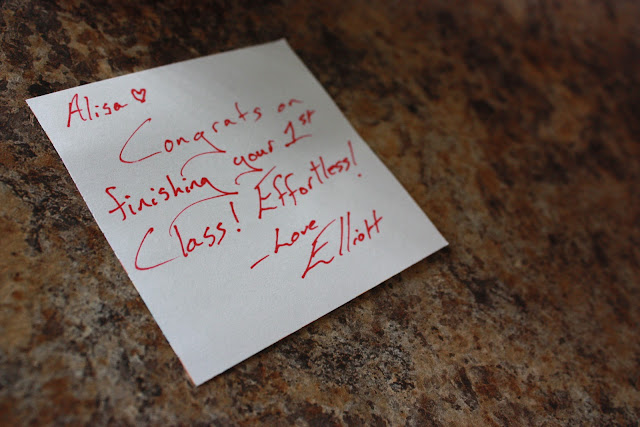 Alisa ♡
Congrats on
finishing your 1st
Class! Effortless!
- Love
Elliott